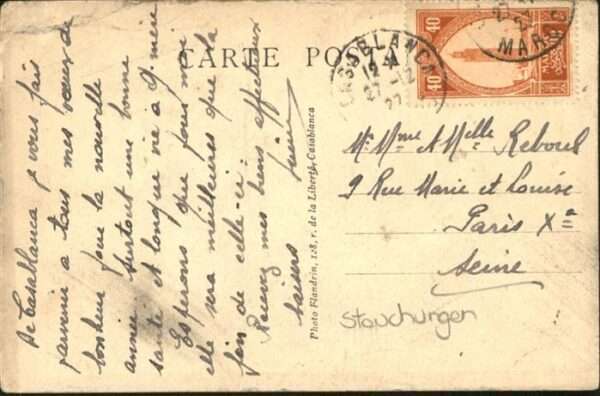 CARTE POSTALE
CASABLANCA
12
27-12
27
MAROC
40
40
De Casablanca je vous fais
parvenir à tous mes vœux de
bonheur pour la nouvelle
année surtout une bonne
santé et longue vie à Gd mère
Espérons que pour moi
elle sera meilleures que la
fin de celle-ci.
Recevez mes biens affectueux
baisers
Photo Flandrin, 128, r. de la Liberté, Casablanca
Mr Mme & Mlle Reboul
9 Rue Marie et Louise
Paris Xe
Seine
Stauchungen